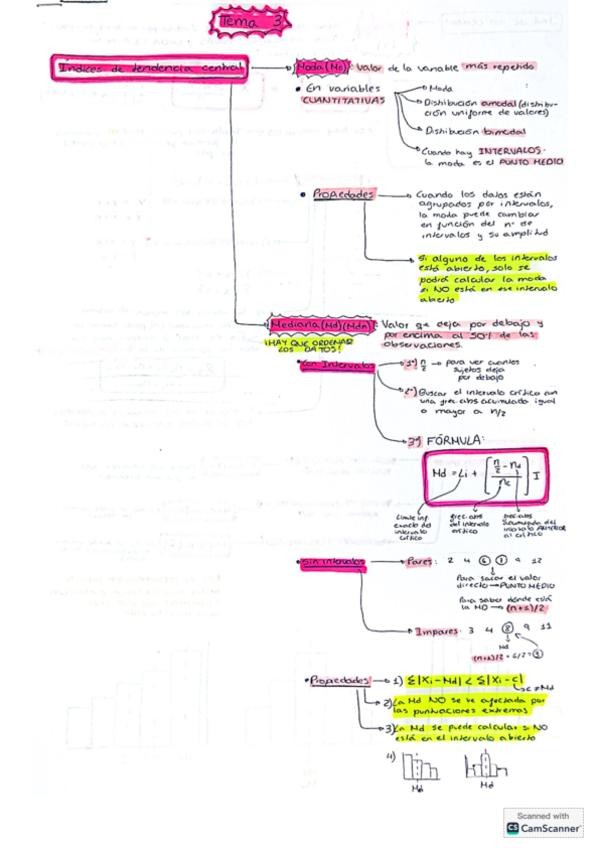 Tema 3
Índices de tendencia central
Moda (Mo): valor de la variable más repetido
• En variables
CUANTITATIVAS
Moda
Distribución amodal (distribu-
ción uniforme de valores)
Distribución bimodal
Cuando hay INTERVALOS.
la moda es el PUNTO MEDIO
• Propiedades
Cuando los datos están
agrupados por intervalos,
la moda puede cambiar
en función del nº de
intervalos y su amplitud
Si alguno de los intervalos
está abierto, solo se
podrá calcular la moda
si NO está en ese intervalo
abierto
Mediana (Md) (Mdn): Valor qe deja por debajo y
por encima al 50% de las
observaciones.
¡HAY QUE ORDENAR
LOS DATOS!
Con Intervalos
1º) n/2 → para ver cuantos
sujetos deja
por debajo
2º) Buscar el intervalo crítico con
una frec. abs acumulada igual
o mayor a n/2
3º) FÓRMULA:
Md = Li + [(n/2 - nd)/nc] I
Límite inf.
exacto del
intervalo
crítico
frec. abs
del intervalo
crítico
frec. abs
acumulada del
intervalo ANTERIOR
al crítico
Sin intervalos
Pares: 2 4 6 7 9 12
Para sacar el valor
directo → PUNTO MEDIO
Para saber dónde está
la MD → (n+1)/2
Impares: 3 4 8 9 11
Md
(n+1)/2 = 6/2 = 3
• Propiedades
1) Σ|Xi - Md| < Σ|Xi - c|
c ≠ Md
2) La Md NO se ve afectada por
las puntuaciones extremas
3) La Md se puede calcular si NO
está en el intervalo abierto
4)
Md
Md
Scanned with
CS CamScanner